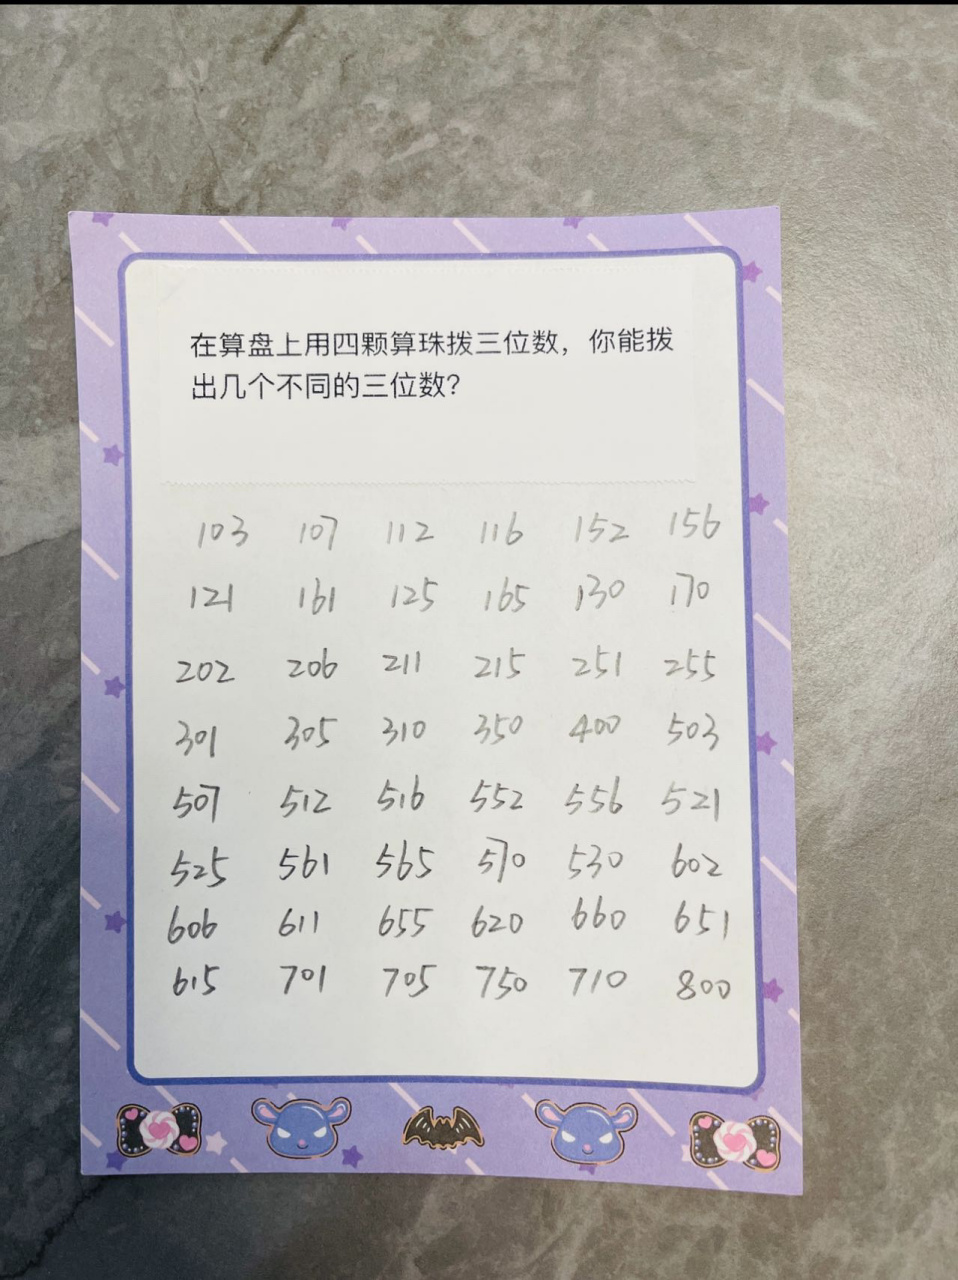 在算盘上用四颗算珠拨三位数，你能拨
出几个不同的三位数？
103 107 112 116 152 156
121 161 125 165 130 170
202 206 211 215 251 255
301 305 310 350 400 503
507 512 516 552 556 521
525 561 565 570 530 602
606 611 655 620 660 651
615 701 705 750 710 800